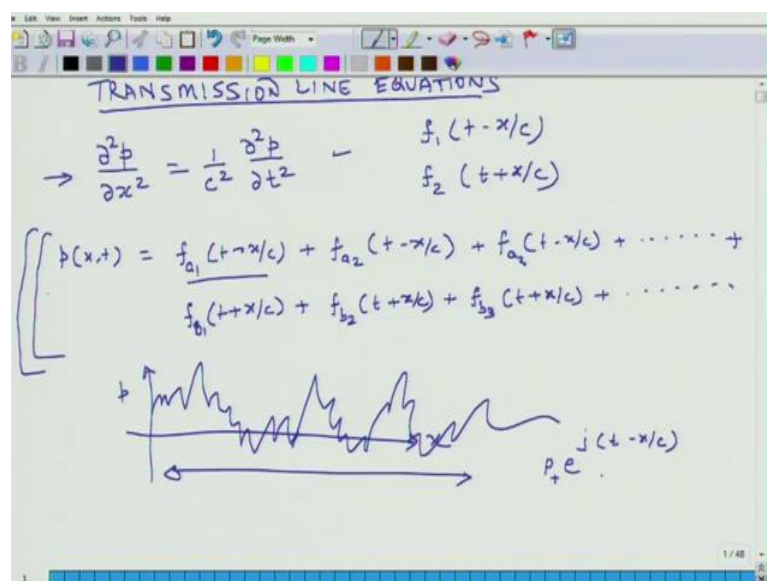 Edit View Insert Actions Tools Help
Page Width
B I
TRANSMISSION LINE EQUATIONS
→ ∂²p/∂x² = 1/c² ∂²p/∂t² – f₁ (t - x/c)
f₂ (t + x/c)
p(x,t) = f_a₁ (t - x/c) + f_a₂ (t - x/c) + f_a₃ (t - x/c) + ...... +
f_b₁ (t + x/c) + f_b₂ (t + x/c) + f_b₃ (t + x/c) + .......
p
x
P₊ e^{j (t - x/c)}
1 / 48
1